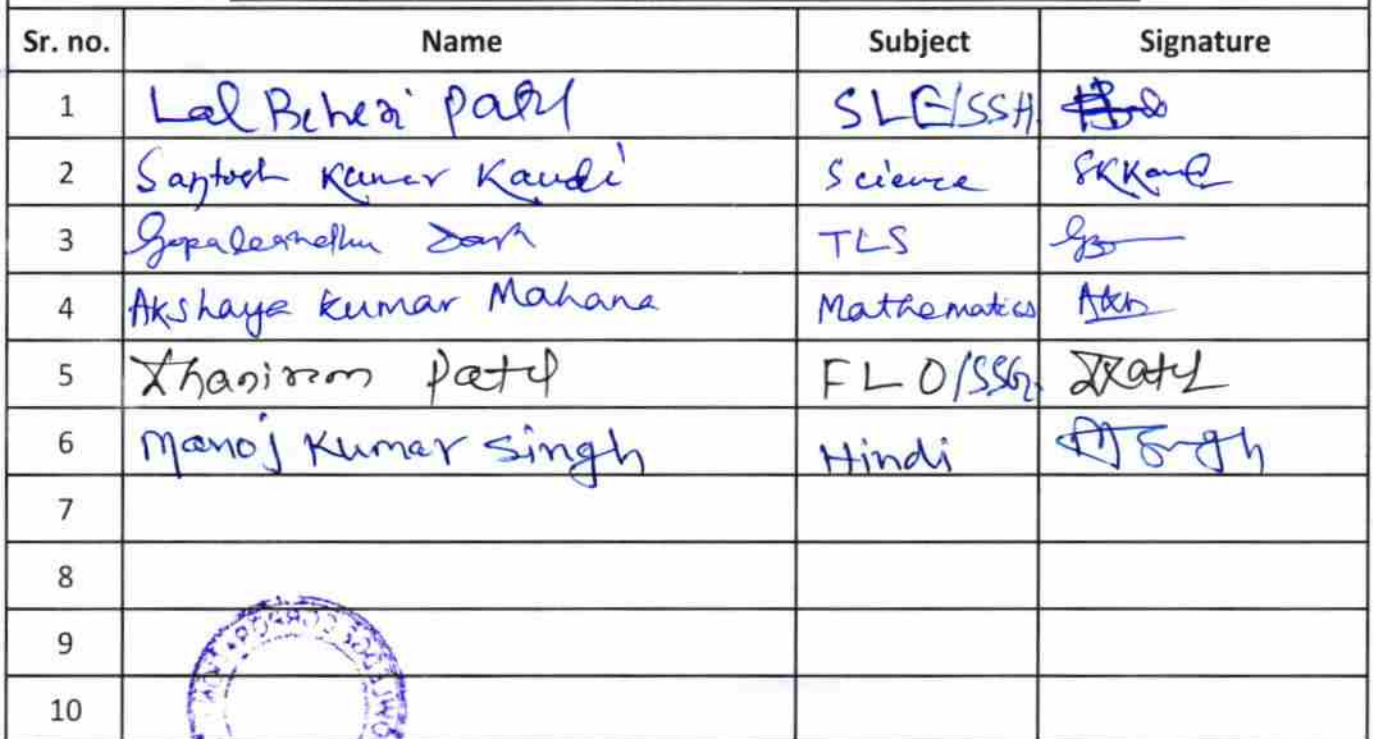 Sr. no. Name Subject Signature
1 Lal Beheri Patel SLE/SSH
2 Santosh Kumar Kaudi Science SKKaudi
3 Dash TLS
4 Akshaya Kumar Mahana Mathematics AKM
5 Patel FLO/SSG. Patel
6 Manoj Kumar Singh Hindi MSingh
7
8
9
10